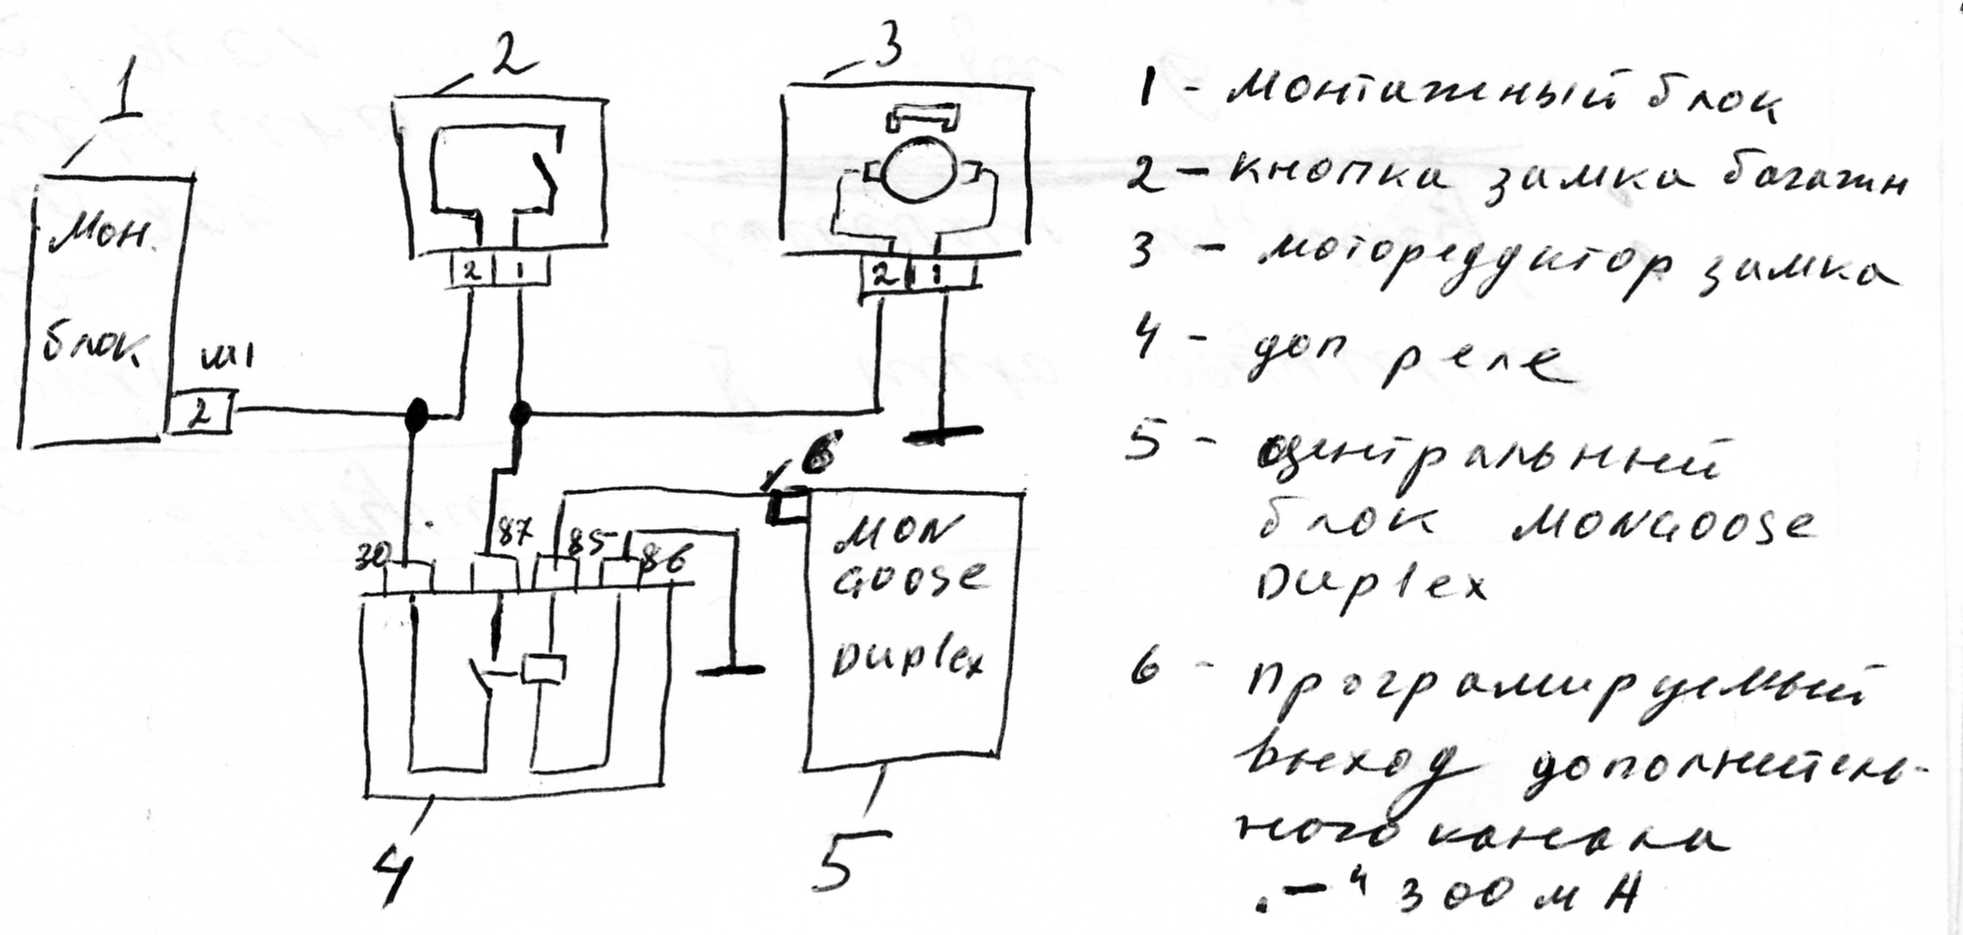 1
2
3
Мон.
блок
ш1
2
2 1
2 1
6
30 87 85 86
MON
GOOSE
Duplex
4
5
1 - монтажный блок
2 - кнопка замка багажн
3 - моторедуктор замка
4 - доп реле
5 - центральный
блок MONGOOSE
Duplex
6 - програмируемый
выход дополнитель-
ного канала
"-" 300 мА